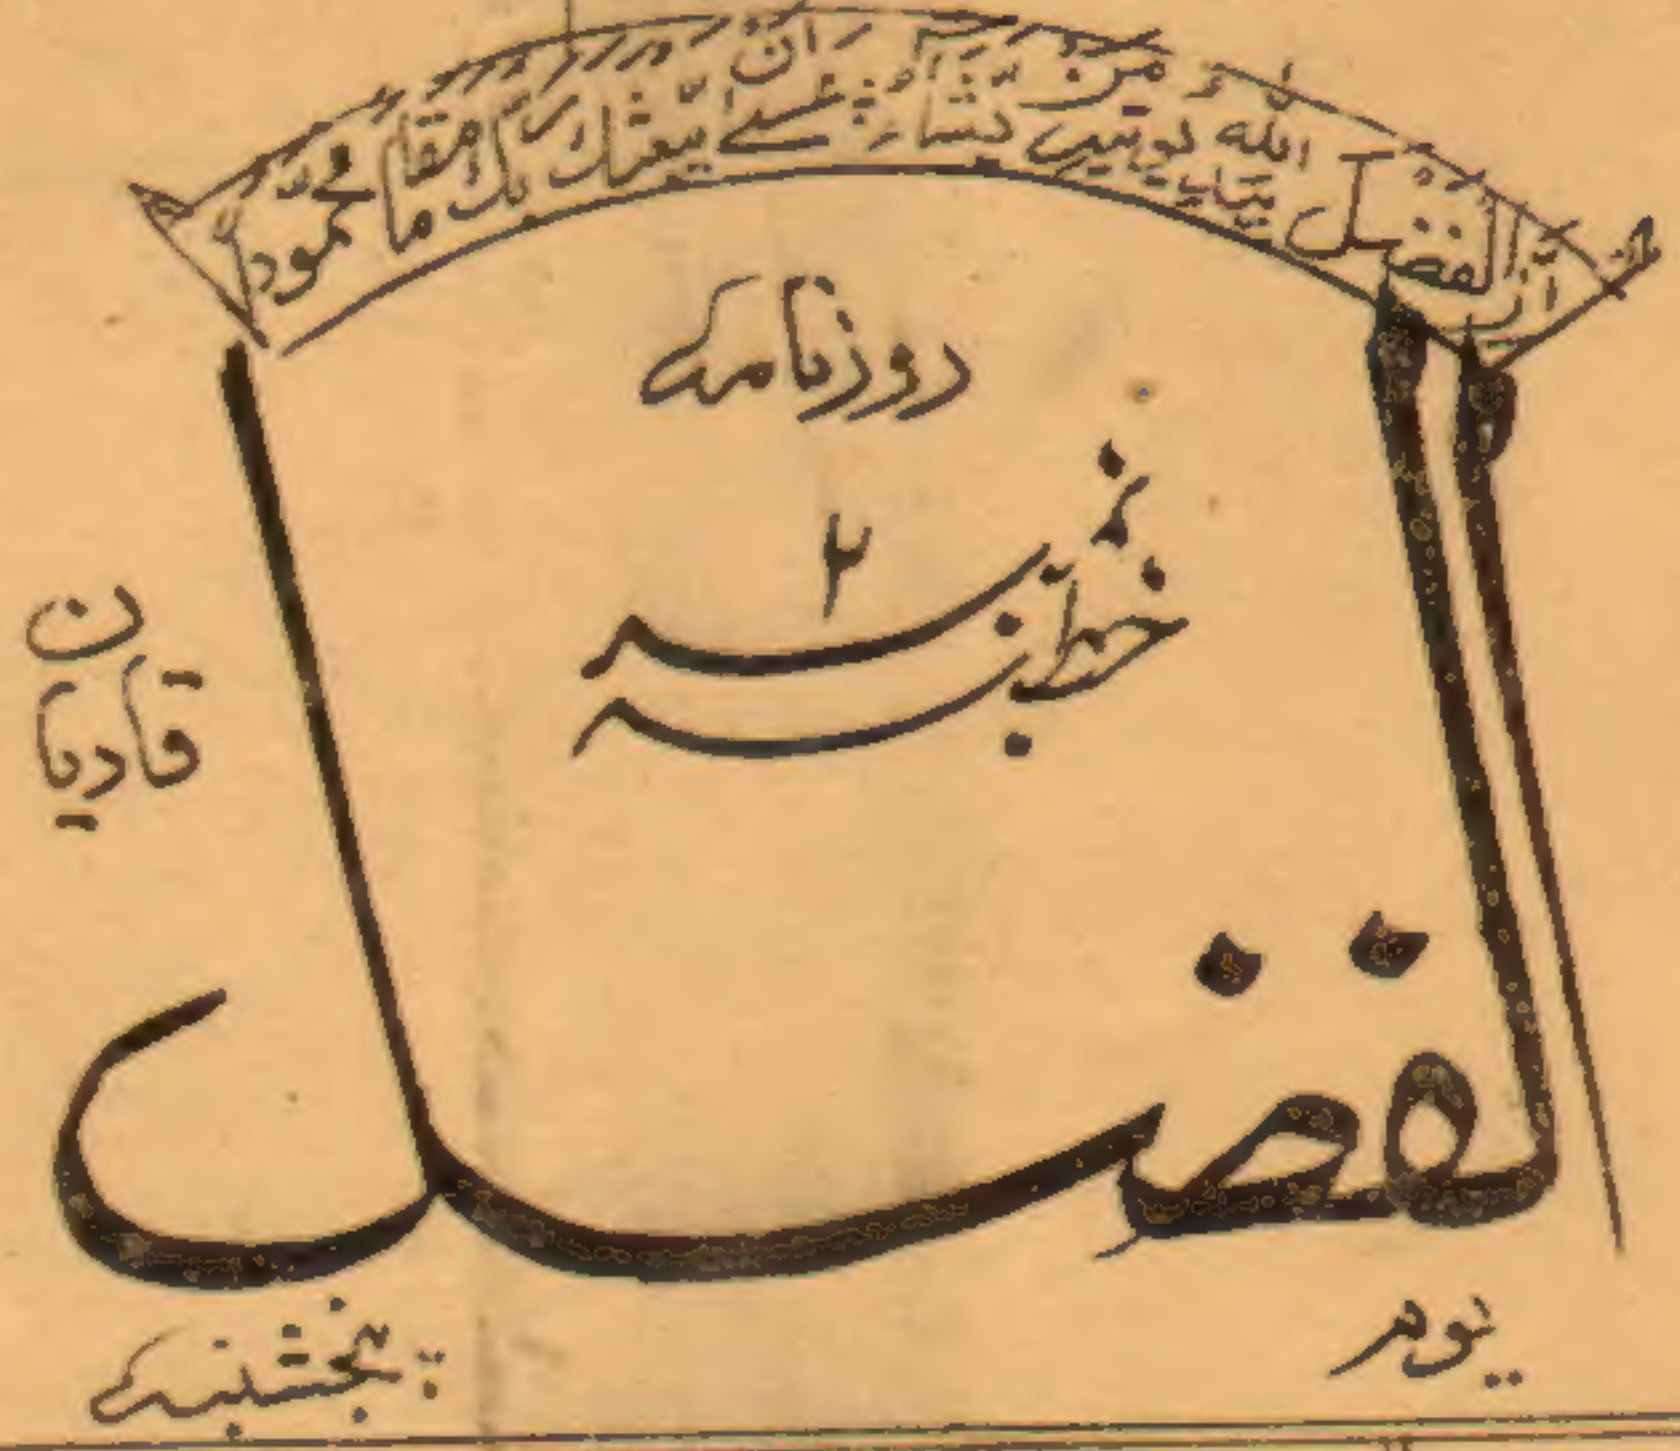 ان الفضل بيد الله يوتيه من يشاء عسىٰ ان يبعثك ربك مقاما محمودا
روزنامہ
خطبہ نمبر ۲
الفضل
قادیان
یوم پنجشنبہ